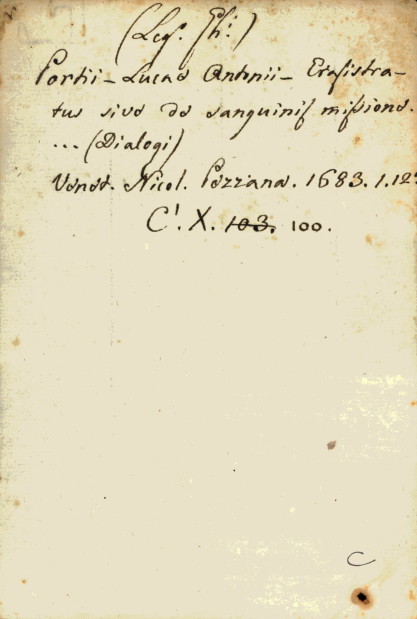 (Leg. Ph:)
Portii - Lucae Antonii - Erasistra-
tus sive de sanguinis missione.
... (Dialogi)
Venet. Nicol. Pezzana. 1683. 1. 12º
C'. X. 103. 100.
C